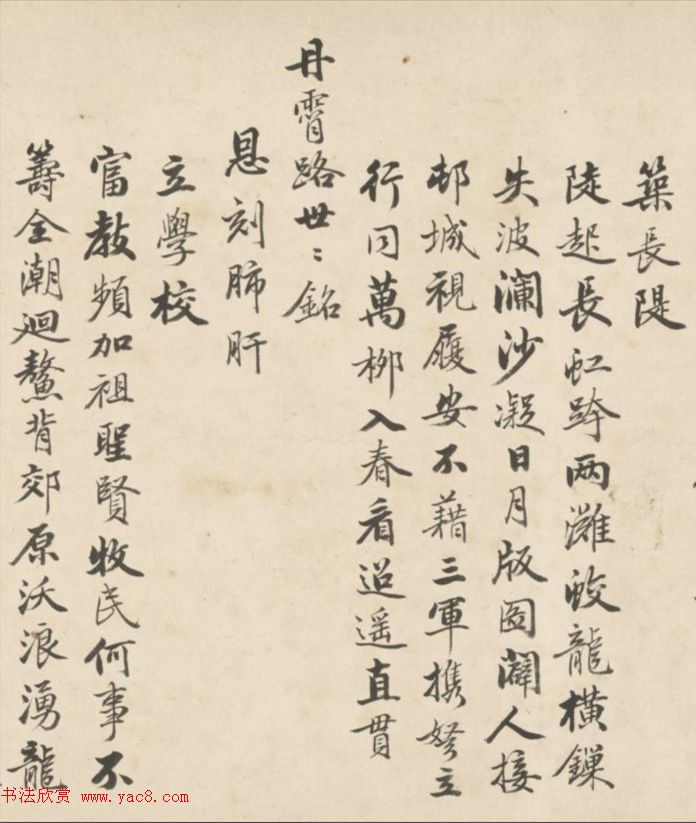 築長隄
陡起長虹跨两灘蛟龍橫鏁
失波瀾沙凝日月版图闊人接
邨城視履安不藉三軍攜弩立
行同萬栁入春看迢遥直貫
丹霄路世〻銘
恩刻肺肝
立學校
富教頻加祖聖賢牧民何事不
籌全潮迴鰲背郊原沃浪湧龍
书法欣赏 www.yac8.com